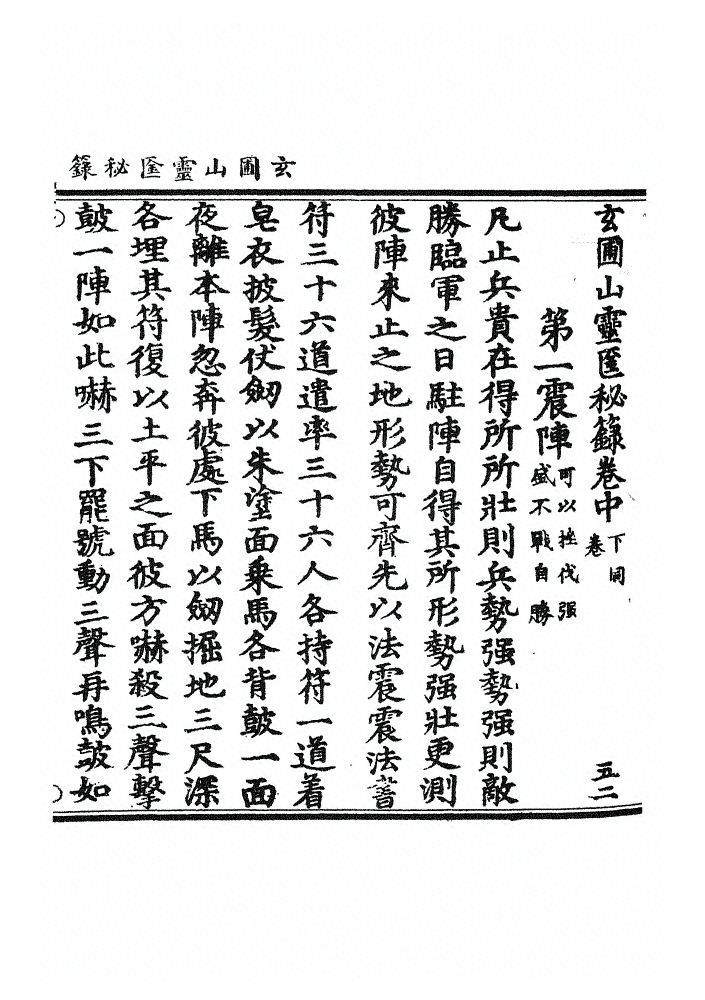 玄圃山靈匧秘籙
玄圃山靈匧秘籙卷中下卷同 五二
第一震陣可以挫伐强盛不戰自勝
凡止兵貴在得所所壯則兵勢强勢强則敵
勝臨軍之日駐陣自得其所形勢强壯更測
彼陣來止之地形勢可齊先以法震震法書
符三十六道遣率三十六人各持符一道着
皂衣披髮伏劒以朱塗面乘馬各背皷一面
夜離本陣忽奔彼處下馬以劒掘地三尺深
各埋其符復以土平之面彼方嚇殺三聲擊
皷一陣如此嚇三下罷號動三聲再鳴皷如